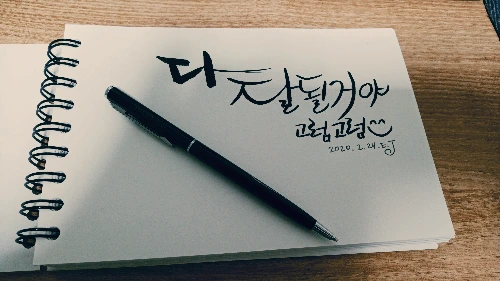 다 잘될거야
고럼고럼
2020. 2. 24. EJ